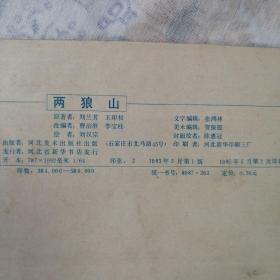 两狼山
原著者：刘兰芳 王印权
改编者：曹治淮 李宝柱
绘者：刘汉宗
文字编辑：张鸿林
美术编辑：贺俊愚
封面绘者：陈惠冠
出版者：河北美术出版社出版（石家庄市北马路45号） 印刷者：河北新华印刷三厂
发行者：河北省新华书店发行
开本：787×1092毫米 1/64 印张：2 1983年5月第1版 1985年4月第2次印刷
印数：384,000—584,000 统一书号：8087·263 定价：0.36元